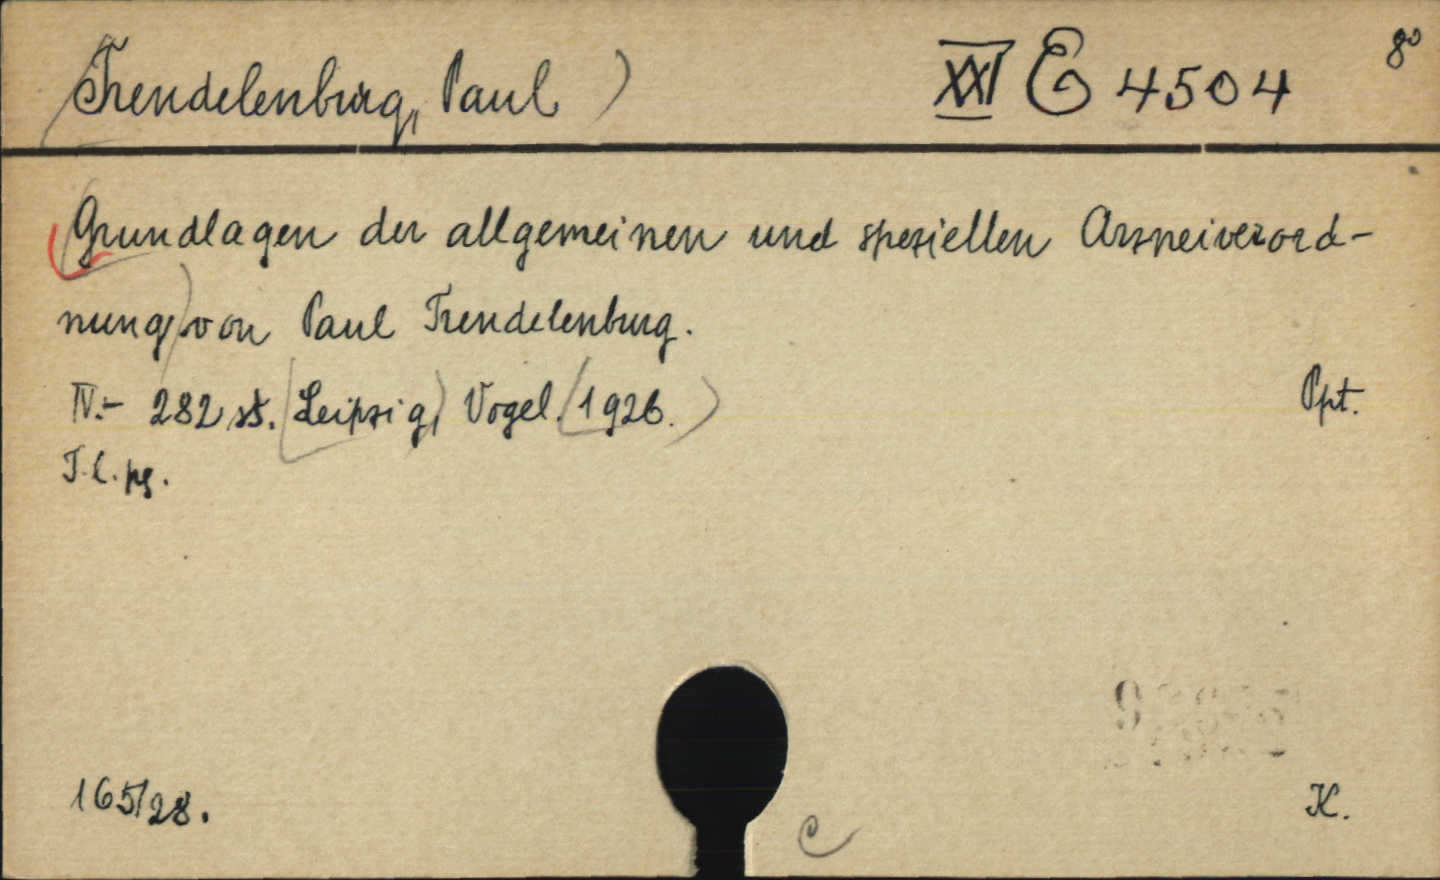 Trendelenburg, Paul) XXI E 4504 8°
Grundlagen der allgemeinen und speziellen Arzneiverord-
nung) von Paul Trendelenburg.
IV.- 282 st. (Leipzig, Vogel. (1926.)
Ppt.
T. l. pg.
165/28.
K.
C